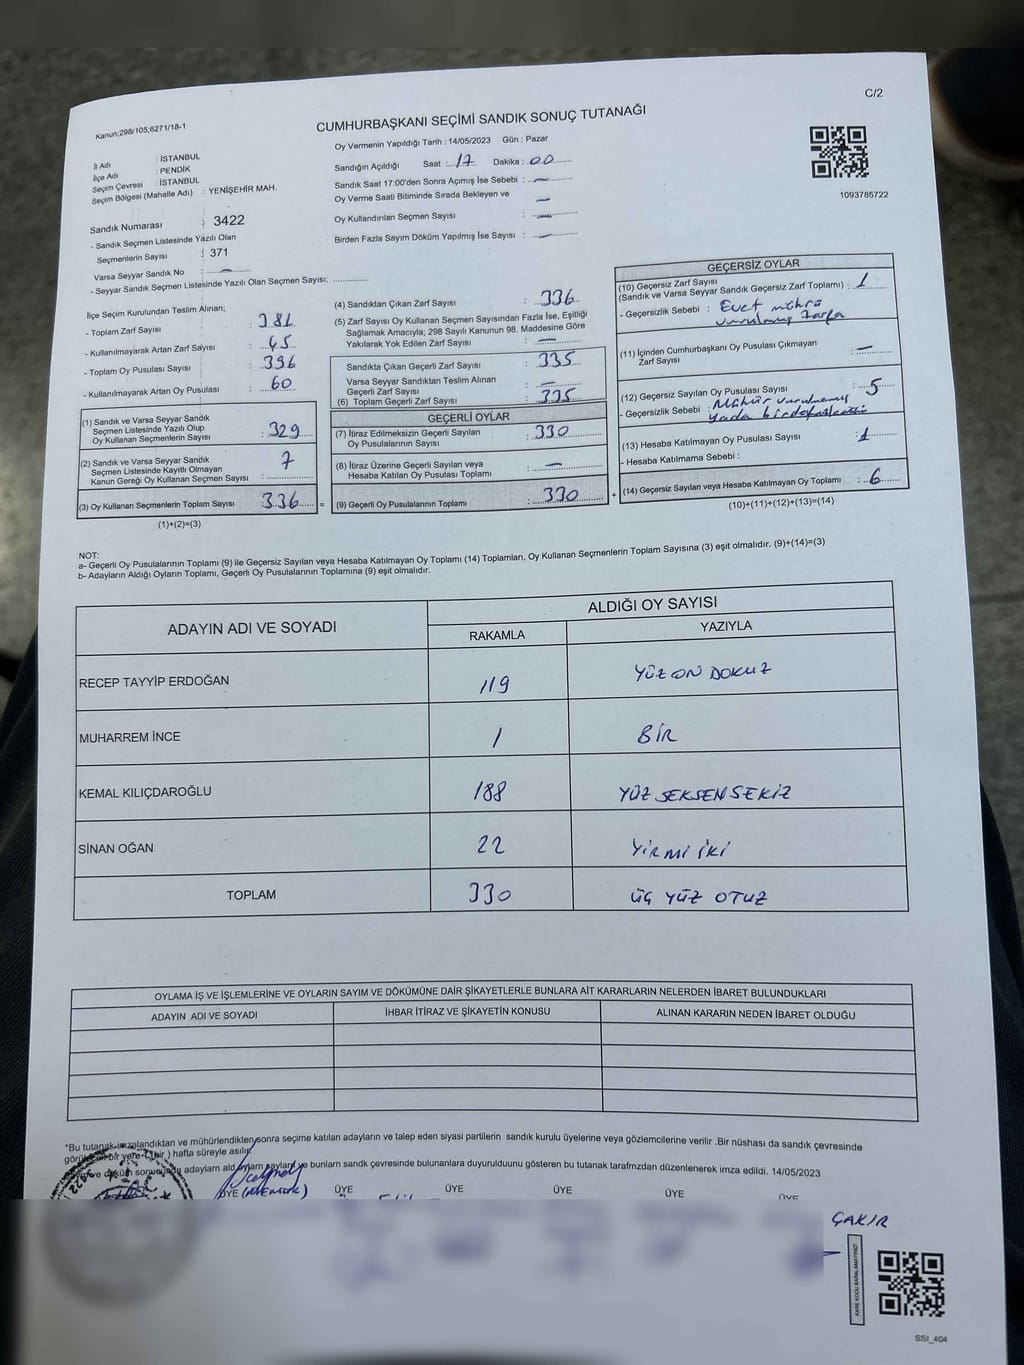 C/2
Kanun;298/105;6271/18-1
CUMHURBAŞKANI SEÇİMİ SANDIK SONUÇ TUTANAĞI
Oy Vermenin Yapıldığı Tarih : 14/05/2023 Gün : Pazar
İl Adı : İSTANBUL
İlçe Adı : PENDİK
Seçim Çevresi : İSTANBUL
Seçim Bölgesi (Mahalle Adı) : YENİŞEHİR MAH.
Sandığın Açıldığı Saat : 17 Dakika : 00
Sandık Saat 17:00'den Sonra Açımış İse Sebebi : —
Oy Verme Saati Bitiminde Sırada Bekleyen ve —
Oy Kullandırılan Seçmen Sayısı : —
Birden Fazla Sayım Döküm Yapılmış İse Sayısı : —
1093785722
Sandık Numarası : 3422
- Sandık Seçmen Listesinde Yazılı Olan
Seçmenlerin Sayısı : 371
Varsa Seyyar Sandık No : —
- Seyyar Sandık Listesinde Yazılı Olan Seçmen Sayısı: ............
İlçe Seçim Kurulundan Teslim Alınan;
- Toplam Zarf Sayısı : 381
- Kullanılmayarak Artan Zarf Sayısı : 45
- Toplam Oy Pusulası Sayısı : 396
- Kullanılmayarak Artan Oy Pusulası : 60
(1) Sandık ve Varsa Seyyar Sandık
Seçmen Listesinde Yazılı Olup
Oy Kullanan Seçmenlerin Sayısı : 329
(2) Sandık ve Varsa Seyyar Sandık
Seçmen Listesinde Kayıtlı Olmayan
Kanun Gereği Oy Kullanan Seçmen Sayısı : 7
(3) Oy Kullanan Seçmenlerin Toplam Sayısı : 336 =
(1)+(2)=(3)
(4) Sandıktan Çıkan Zarf Sayısı : 336
(5) Zarf Sayısı Oy Kullanan Seçmen Sayısından Fazla İse, Eşitliği
Sağlamak Amacıyla; 298 Sayılı Kanunun 98. Maddesine Göre
Yakılarak Yok Edilen Zarf Sayısı : —
Sandıkta Çıkan Geçerli Zarf Sayısı : 335
Varsa Seyyar Sandıktan Teslim Alınan
Geçerli Zarf Sayısı : —
(6) Toplam Geçerli Zarf Sayısı : 335
GEÇERLİ OYLAR
(7) İtiraz Edilmeksizin Geçerli Sayılan
Oy Pusulalarının Sayısı : 330
(8) İtiraz Üzerine Geçerli Sayılan veya
Hesaba Katılan Oy Pusulası Toplamı : —
(9) Geçerli Oy Pusulalarının Toplamı : 330 +
GEÇERSİZ OYLAR
(10) Geçersiz Zarf Sayısı
(Sandık ve Varsa Seyyar Sandık Geçersiz Zarf Toplamı) : 1
- Geçersizlik Sebebi : Evet mührü
vurulmuş zarfa
(11) İçinden Cumhurbaşkanı Oy Pusulası Çıkmayan
Zarf Sayısı : —
(12) Geçersiz Sayılan Oy Pusulası Sayısı : 5
- Geçersizlik Sebebi : Mühür vurulmamış
yada
(13) Hesaba Katılmayan Oy Pusulası Sayısı : 1
- Hesaba Katılmama Sebebi :
(14) Geçersiz Sayılan veya Hesaba Katılmayan Oy Toplamı : 6
(10)+(11)+(12)+(13)=(14)
NOT:
a- Geçerli Oy Pusulalarının Toplamı (9) ile Geçersiz Sayılan veya Hesaba Katılmayan Oy Toplamı (14) Toplamları, Oy Kullanan Seçmenlerin Toplam Sayısına (3) eşit olmalıdır. (9)+(14)=(3)
b- Adayların Aldığı Oyların Toplamı, Geçerli Oy Pusulalarının Toplamına (9) eşit olmalıdır.
ADAYIN ADI VE SOYADI
ALDIĞI OY SAYISI
RAKAMLA YAZIYLA
RECEP TAYYİP ERDOĞAN 119 YÜZ ON DOKUZ
MUHARREM İNCE 1 BİR
KEMAL KILIÇDAROĞLU 188 YÜZ SEKSEN SEKİZ
SİNAN OĞAN 22 YİRMİ İKİ
TOPLAM 330 ÜÇ YÜZ OTUZ
OYLAMA İŞ VE İŞLEMLERİNE VE OYLARIN SAYIM VE DÖKÜMÜNE DAİR ŞİKAYETLERLE BUNLARA AİT KARARLARIN NELERDEN İBARET BULUNDUKLARI
ADAYIN ADI VE SOYADI İHBAR İTİRAZ VE ŞİKAYETİN KONUSU ALINAN KARARIN NEDEN İBARET OLDUĞU
*Bu tutanak imzalandıktan ve mühürlendikten sonra seçime katılan adayların ve talep eden siyasi partilerin sandık kurulu üyelerine veya gözlemcilerine verilir .Bir nüshası da sandık çevresinde
bir yere 1 ( bir ) hafta süreyle asılır.
adayların bunların sandık çevresinde bulunanlara duyurulduunu gösteren bu tutanak tarafmzdan düzenlenerek imza edildi. 14/05/2023
ÜYE ÜYE ÜYE ÜYE ÜYE ÜYE
ÇAKIR
KARE KODU KARALAMAYINIZ!
SSİ_404